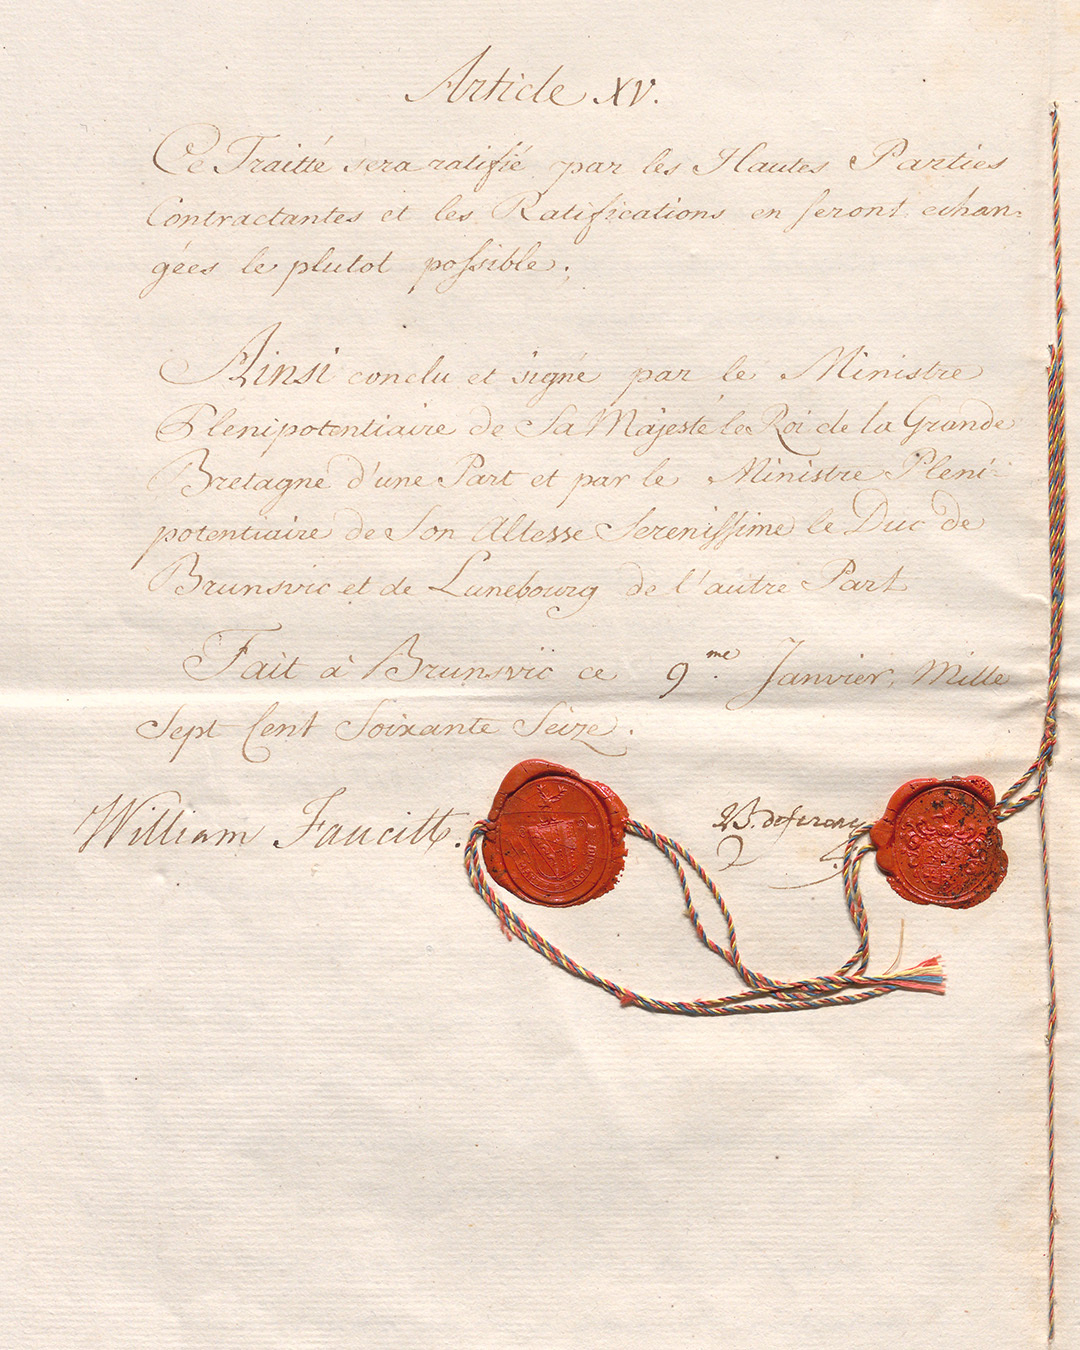 Article XV.
Ce Traitté sera ratifié par les Hautes Parties
Contractantes et les Ratifications en seront echan-
gées le plutot possible.
Ainsi conclu et signé par le Ministre
Plenipotentiaire de Sa Majesté le Roi de la Grande
Bretagne d'une Part et par le Ministre Pleni-
potentiaire de Son Altesse Serenissime le Duc de
Brunsvic et de Lunebourg de l'autre Part
Fait à Brunsvic ce 9.me Janvier, Mille
Sept Cent Soixante Seize.
William Faucitt.